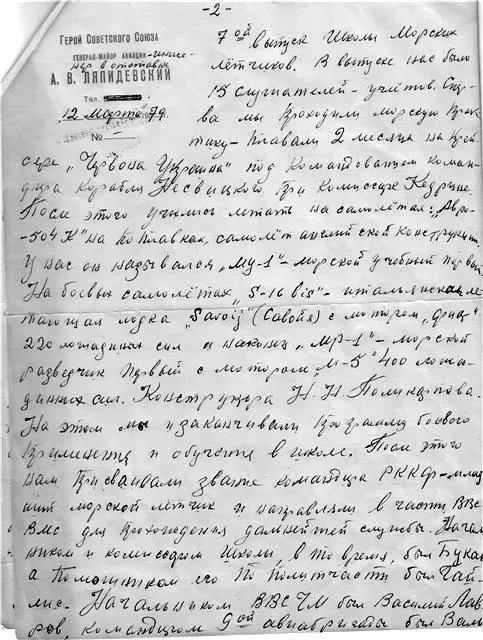 -2-
Герой Советского Союза
генерал-майор авиации-инже-
нер в отставке
А. В. ЛЯПИДЕВСКИЙ
Тел.
12 Марта 79
№
7ой выпуск Школы Морских
лётчиков. В выпуске нас было
слушателей - учлётов. Сна-
ва мы проходили морскую прак-
тику - плавали 2 месяца на крей-
сере „Червона Украина" под командованием коман-
дира корабля Несвицкого при комиссаре
После этого учились летать на самолётах: „Авро-
-504 К" на поплавках, самолёт английской конструкции.
У нас он назывался „Му-1" - морской учебный первый
На боевых самолётах „S-16 bis" - итальянская ле-
тающая лодка „Savoij" (Савойя) с мотором
220 лошадиных сил и наконец „МР-1" - морской
разведчик первый с мотором „М-5" 400 лоша-
динных сил. Конструктора Н. Н. Поликарпова.
На этом мы и заканчивали программу боевого
применения и обучения в школе. После этого
нам присваивали звание командира РККФ - млад-
ший морской лётчик и направляли в части ВВС
ВМС для прохождения дальнейшей службы. Началь
ником и комиссаром Школы, в то время, был
а помощником его по политчасти был Гай-
лис. Начальником ВВСЧМ был Василий Лав-
ров, командиром 9ой авиабригады был